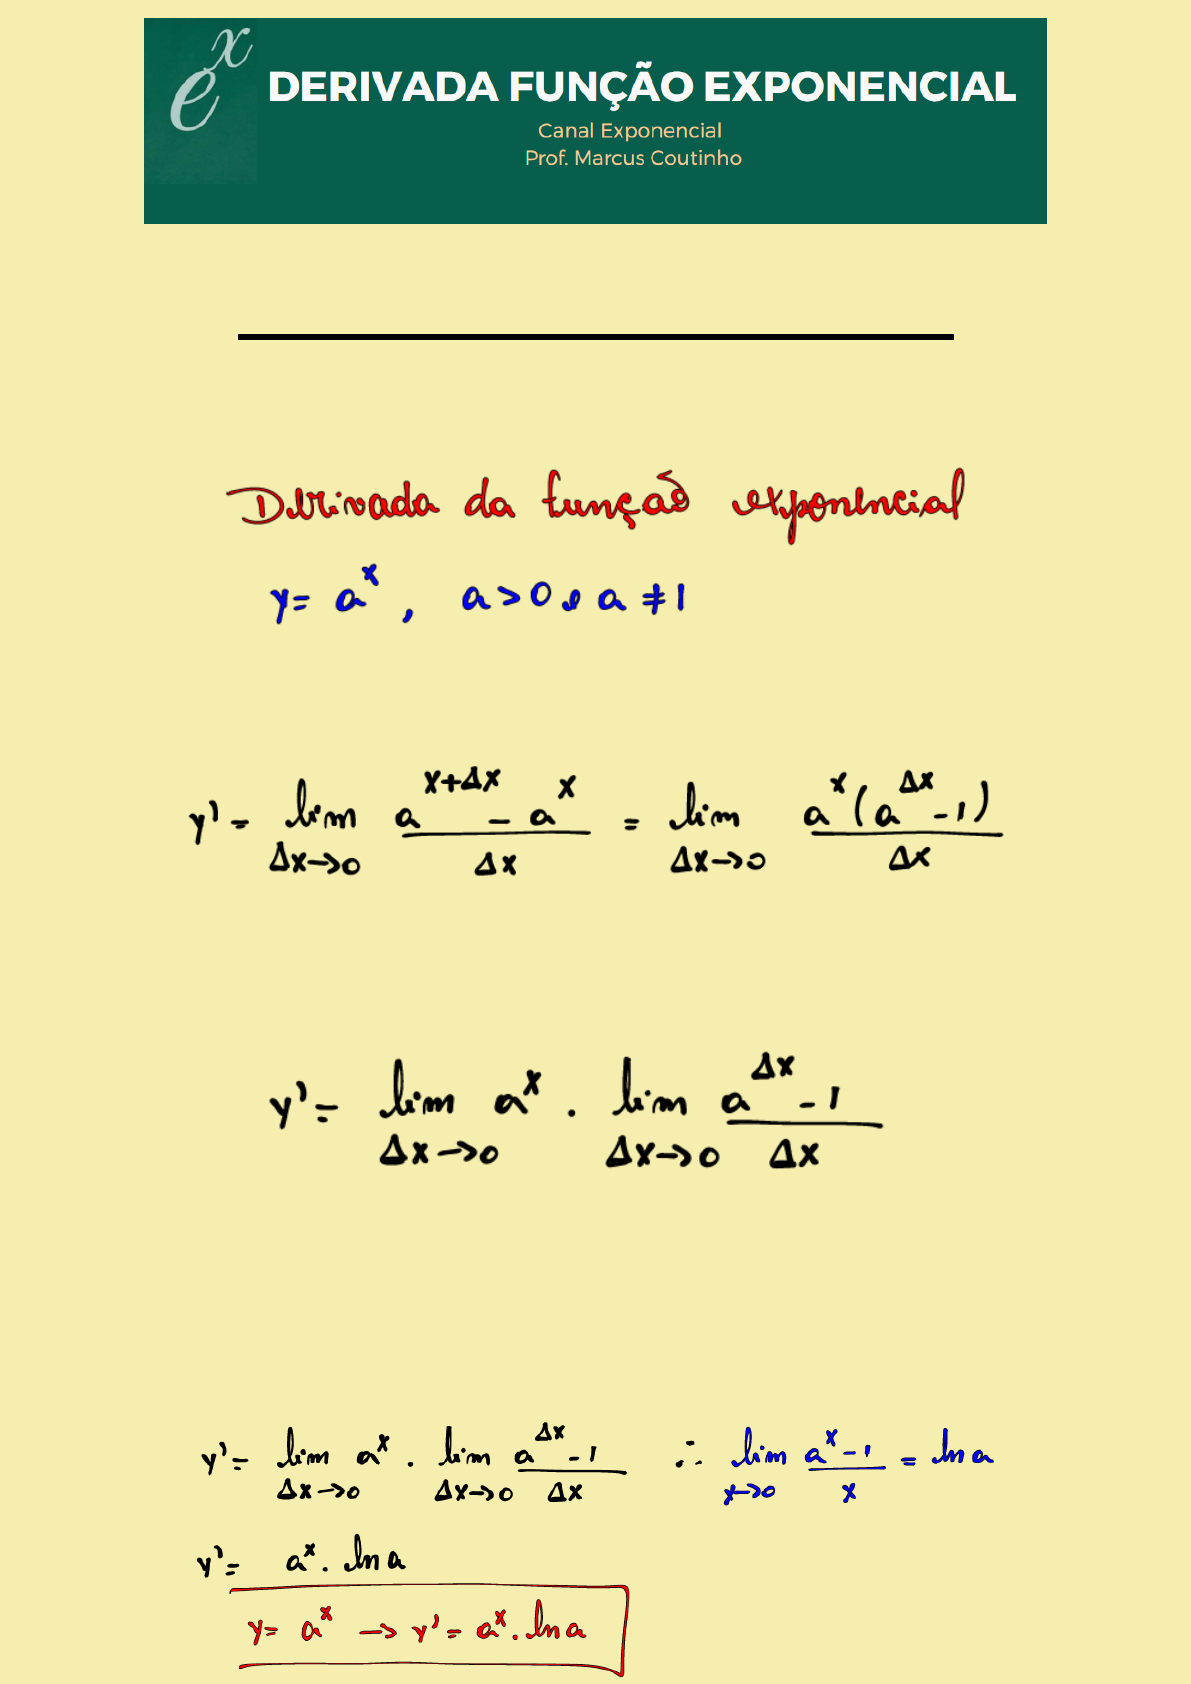 eˣ
DERIVADA FUNÇÃO EXPONENCIAL
Canal Exponencial
Prof. Marcus Coutinho
Derivada da função exponencial
y = aˣ , a > 0 e a ≠ 1
y' = lim Δx→0 (a^(x+Δx) - aˣ)/Δx = lim Δx→0 aˣ(a^Δx - 1)/Δx
y' = lim Δx→0 aˣ . lim Δx→0 (a^Δx - 1)/Δx
y' = lim Δx→0 aˣ . lim Δx→0 (a^Δx - 1)/Δx ∴ lim x→0 (aˣ - 1)/x = ln a
y' = aˣ . ln a
y = aˣ → y' = aˣ . ln a